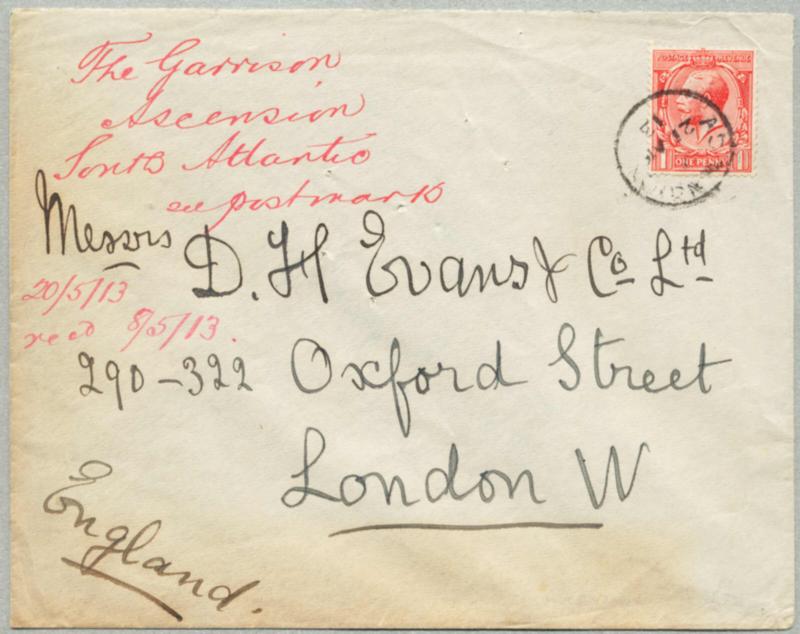 The Garrison
Ascension
South Atlantic
see postmark
POSTAGE REVENUE
ONE PENNY
Messrs D. H Evans & Co Ltd
20/5/13
recd 8/5/13.
290-322 Oxford Street
London W
England.